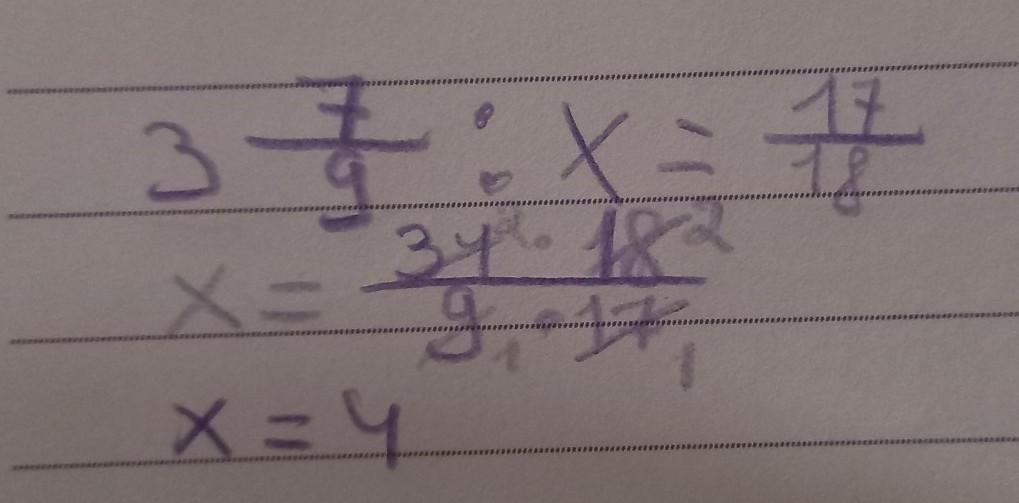 3 7/9 : x = 17/18
x = 34² · 18² / 9₁ · 17₁
x = 4